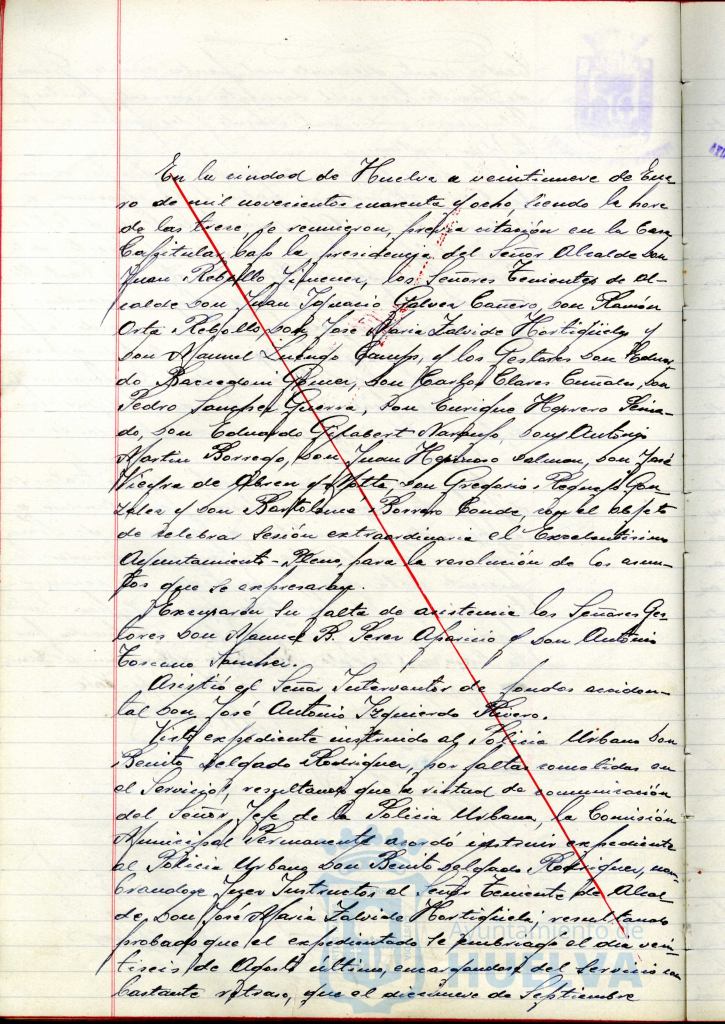 En la ciudad de Huelva a veintinueve de Ene-
ro de mil novecientos cuarenta y ocho, siendo la hora
de las trece, se reunieron, previa citación en la Casa
Capitular, bajo la presidencia del Señor Alcalde Don
Juan Rebollo Jimenez, los Señores Tenientes de Al-
calde Don Juan Ignacio Gálvez Cañero, Don Ramón
Orta Rebollo, Don José Maria Zalvide Hortigüela y
Don Manuel Luengo Camps, y los Gestores Don Eduar-
do Bacedoni Gómez, Don Carlos Clares Cuñales, Don
Pedro Sanchez Guerra, Don Enrique Herrero Peina-
do, Don Eduardo Gisabert Naranjo, Don Antonio
Martin Borrego, Don Juan Hermoso Salmón, Don José
Vieyra de Abreu y Motta, Don Gregorio Requejo Gon-
zalez y Don Bartolomé Borrero Conde, con el objeto
de celebrar sesión extraordinaria el Excelentísimo
Ayuntamiento-Pleno, para la resolución de los asun-
tos que se expresaran.
Excusaron su falta de asistencia los Señores Ges-
tores Don Manuel B. Perez Aparicio y Don Antonio
Toscano Sanchez.
Asistió el Señor Interventor de fondos acciden-
tal Don José Antonio Izquierdo Rivero.
Visto expediente instruido al Policia Urbano Don
Benito Delgado Rodriguez, por faltas cometidas en
el Servicio, resultando que a virtud de comunicación
del Señor Jefe de la Policia Urbana, la Comisión
Municipal Permanente acordó instruir expediente
al Policia Urbano Don Benito Delgado Rodriguez, nom-
brandose Juez Instructor al Señor Teniente de Alcal-
de Don José Maria Zalvide Hortigüela; resultando
probado que el expedientado se embriagó el dia vein-
tiseis de Agosto último, encargandose del Servicio con
bastante retraso, que el diecinueve de Septiembre
Ayuntamiento de
HUELVA